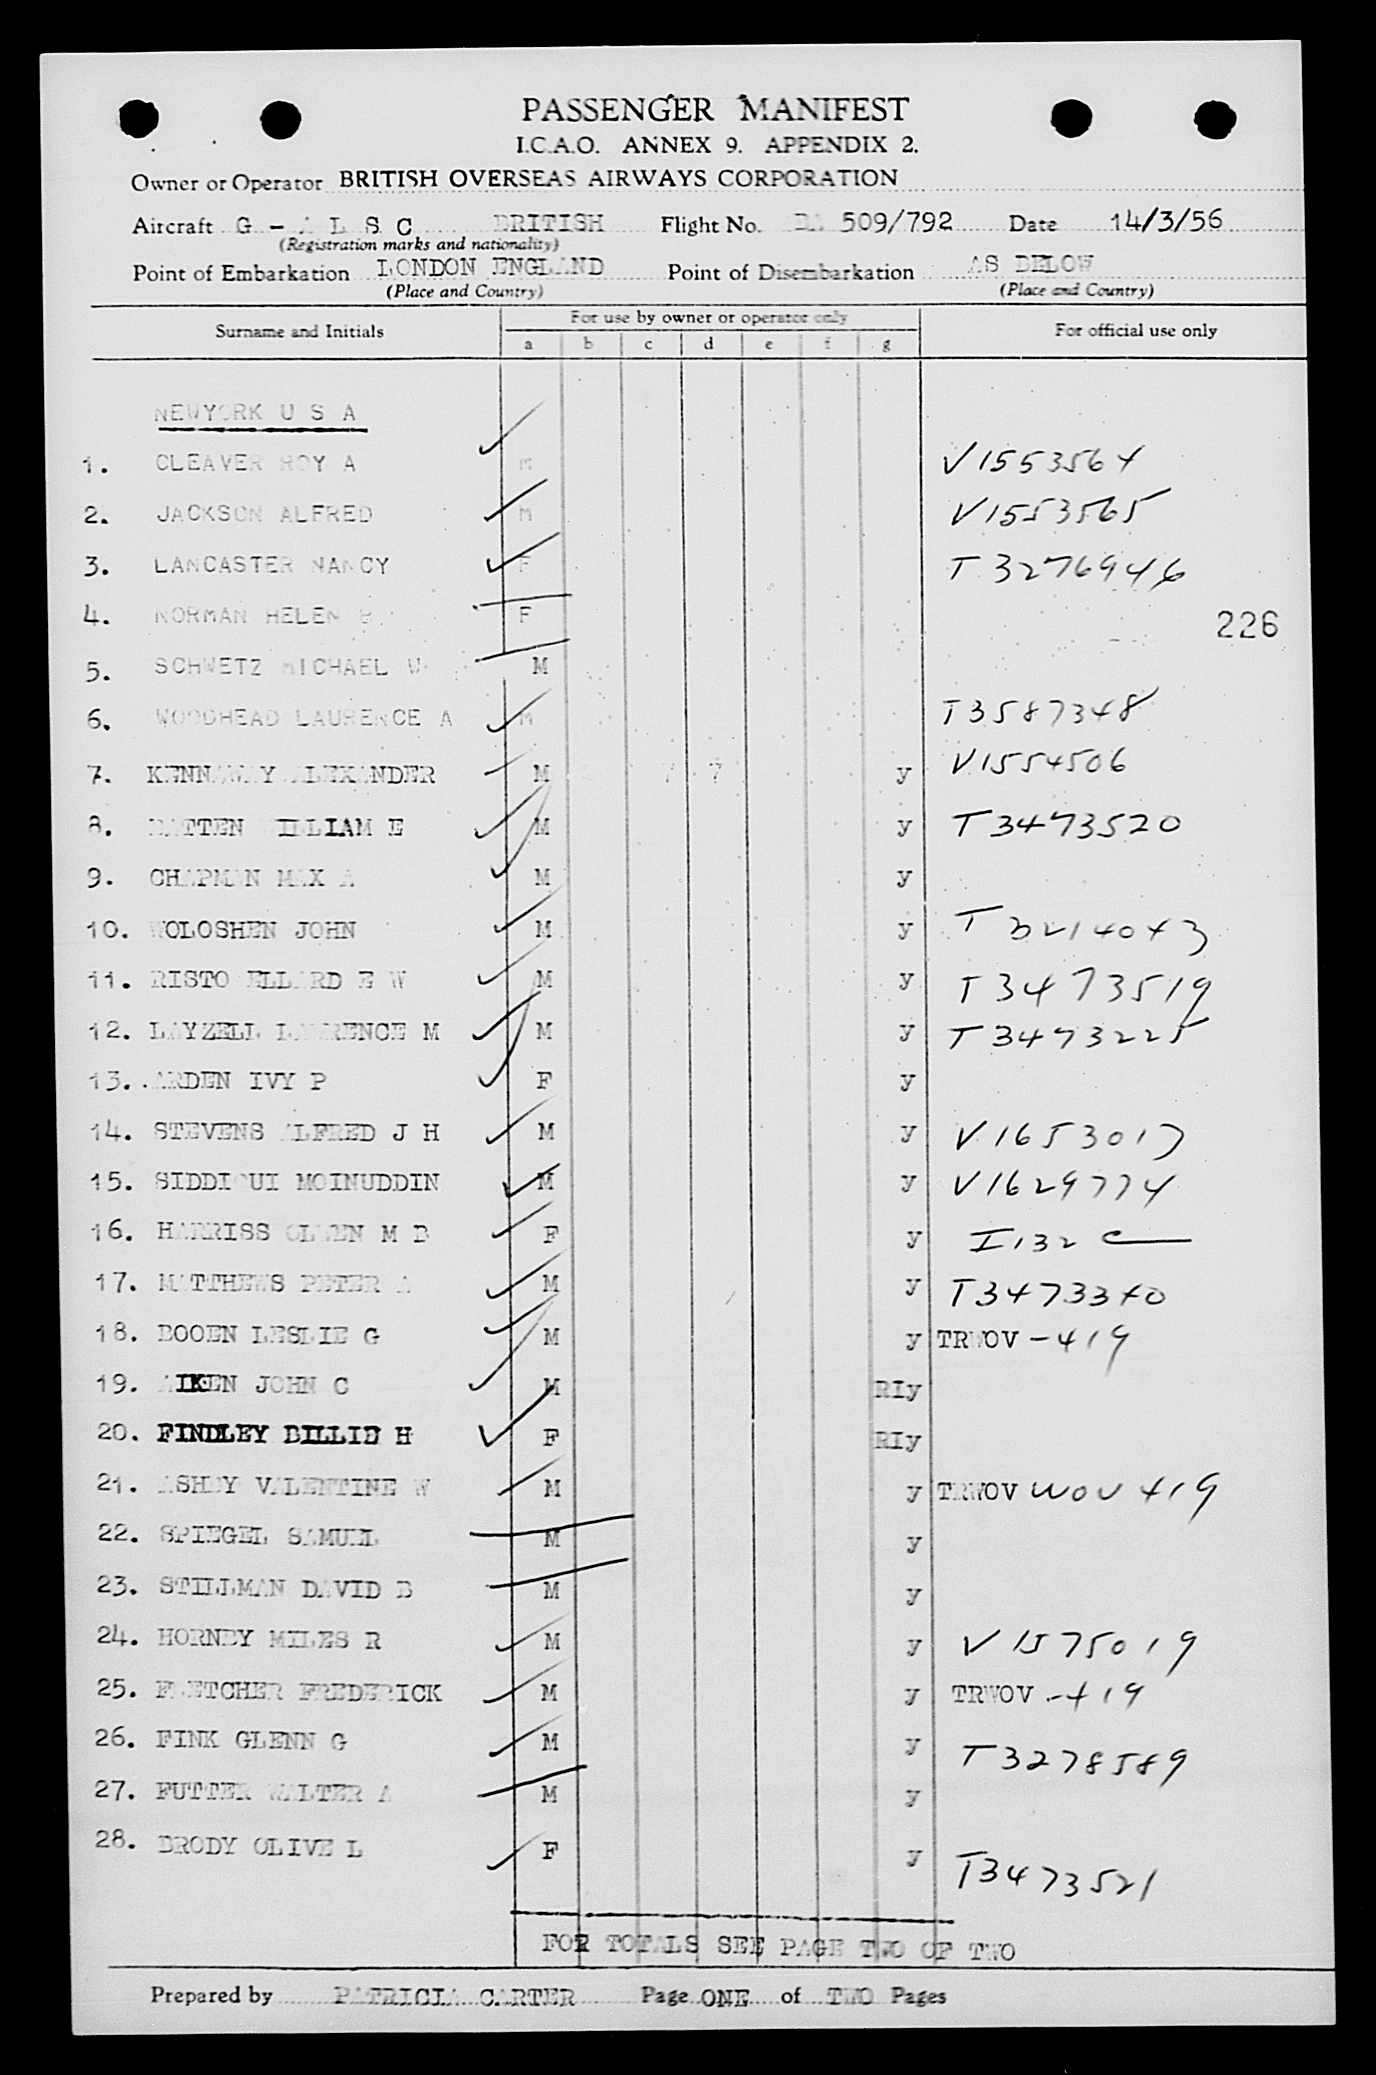 PASSENGER MANIFEST
I.C.A.O. ANNEX 9. APPENDIX 2.
Owner or Operator BRITISH OVERSEAS AIRWAYS CORPORATION
Aircraft G - A L S C BRITISH Flight No. BA 509/792 Date 14/3/56
(Registration marks and nationality)
Point of Embarkation LONDON ENGLAND Point of Disembarkation AS BELOW
(Place and Country) (Place and Country)
Surname and Initials For use by owner or operator only For official use only
a b c d e f g
NEWYORK U S A
1. CLEAVER ROY A M V1553564
2. JACKSON ALFRED M V1553565
3. LANCASTER NANCY F T 3276946
4. NORMAN HELEN F 226
5. SCHWETZ MICHAEL W M
6. WOODHEAD LAURENCE A M T3587348
7. KENNAWAY ALEXANDER M y V1554506
8. BATTEN WILLIAM E M y T3473520
9. CHAPMAN MAX A M y
10. WOLOSHEN JOHN M y T 3214043
11. RISTO ELLARD E W M y T3473519
12. LAYZELL LAWRENCE M M y T 3473225
13. ARDEN IVY P F y
14. STEVENS ALFRED J H M y V1653017
15. SIDDIQUI MOINUDDIN M y V1629774
16. HARRISS OLWEN M B F y I132 C
17. MATTHEWS PETER A M y T3473340
18. BOOEN LESLIE G M y TRWOV - 419
19. AIKEN JOHN C M RIy
20. FINDLEY BILLIE H F RIy
21. ASHBY VALENTINE W M y TRWOV WOV 419
22. SPIEGEL SAMUEL M y
23. STILLMAN DAVID B M y
24. HORNBY MILES R M y V 1575019
25. FLETCHER FREDERICK M y TRWOV - 419
26. FINK GLENN G M y T3278589
27. FUTTER WALTER A M y
28. BRODY OLIVE L F y T3473521
FOR TOTALS SEE PAGE TWO OF TWO
Prepared by PATRICIA CARTER Page ONE of TWO Pages